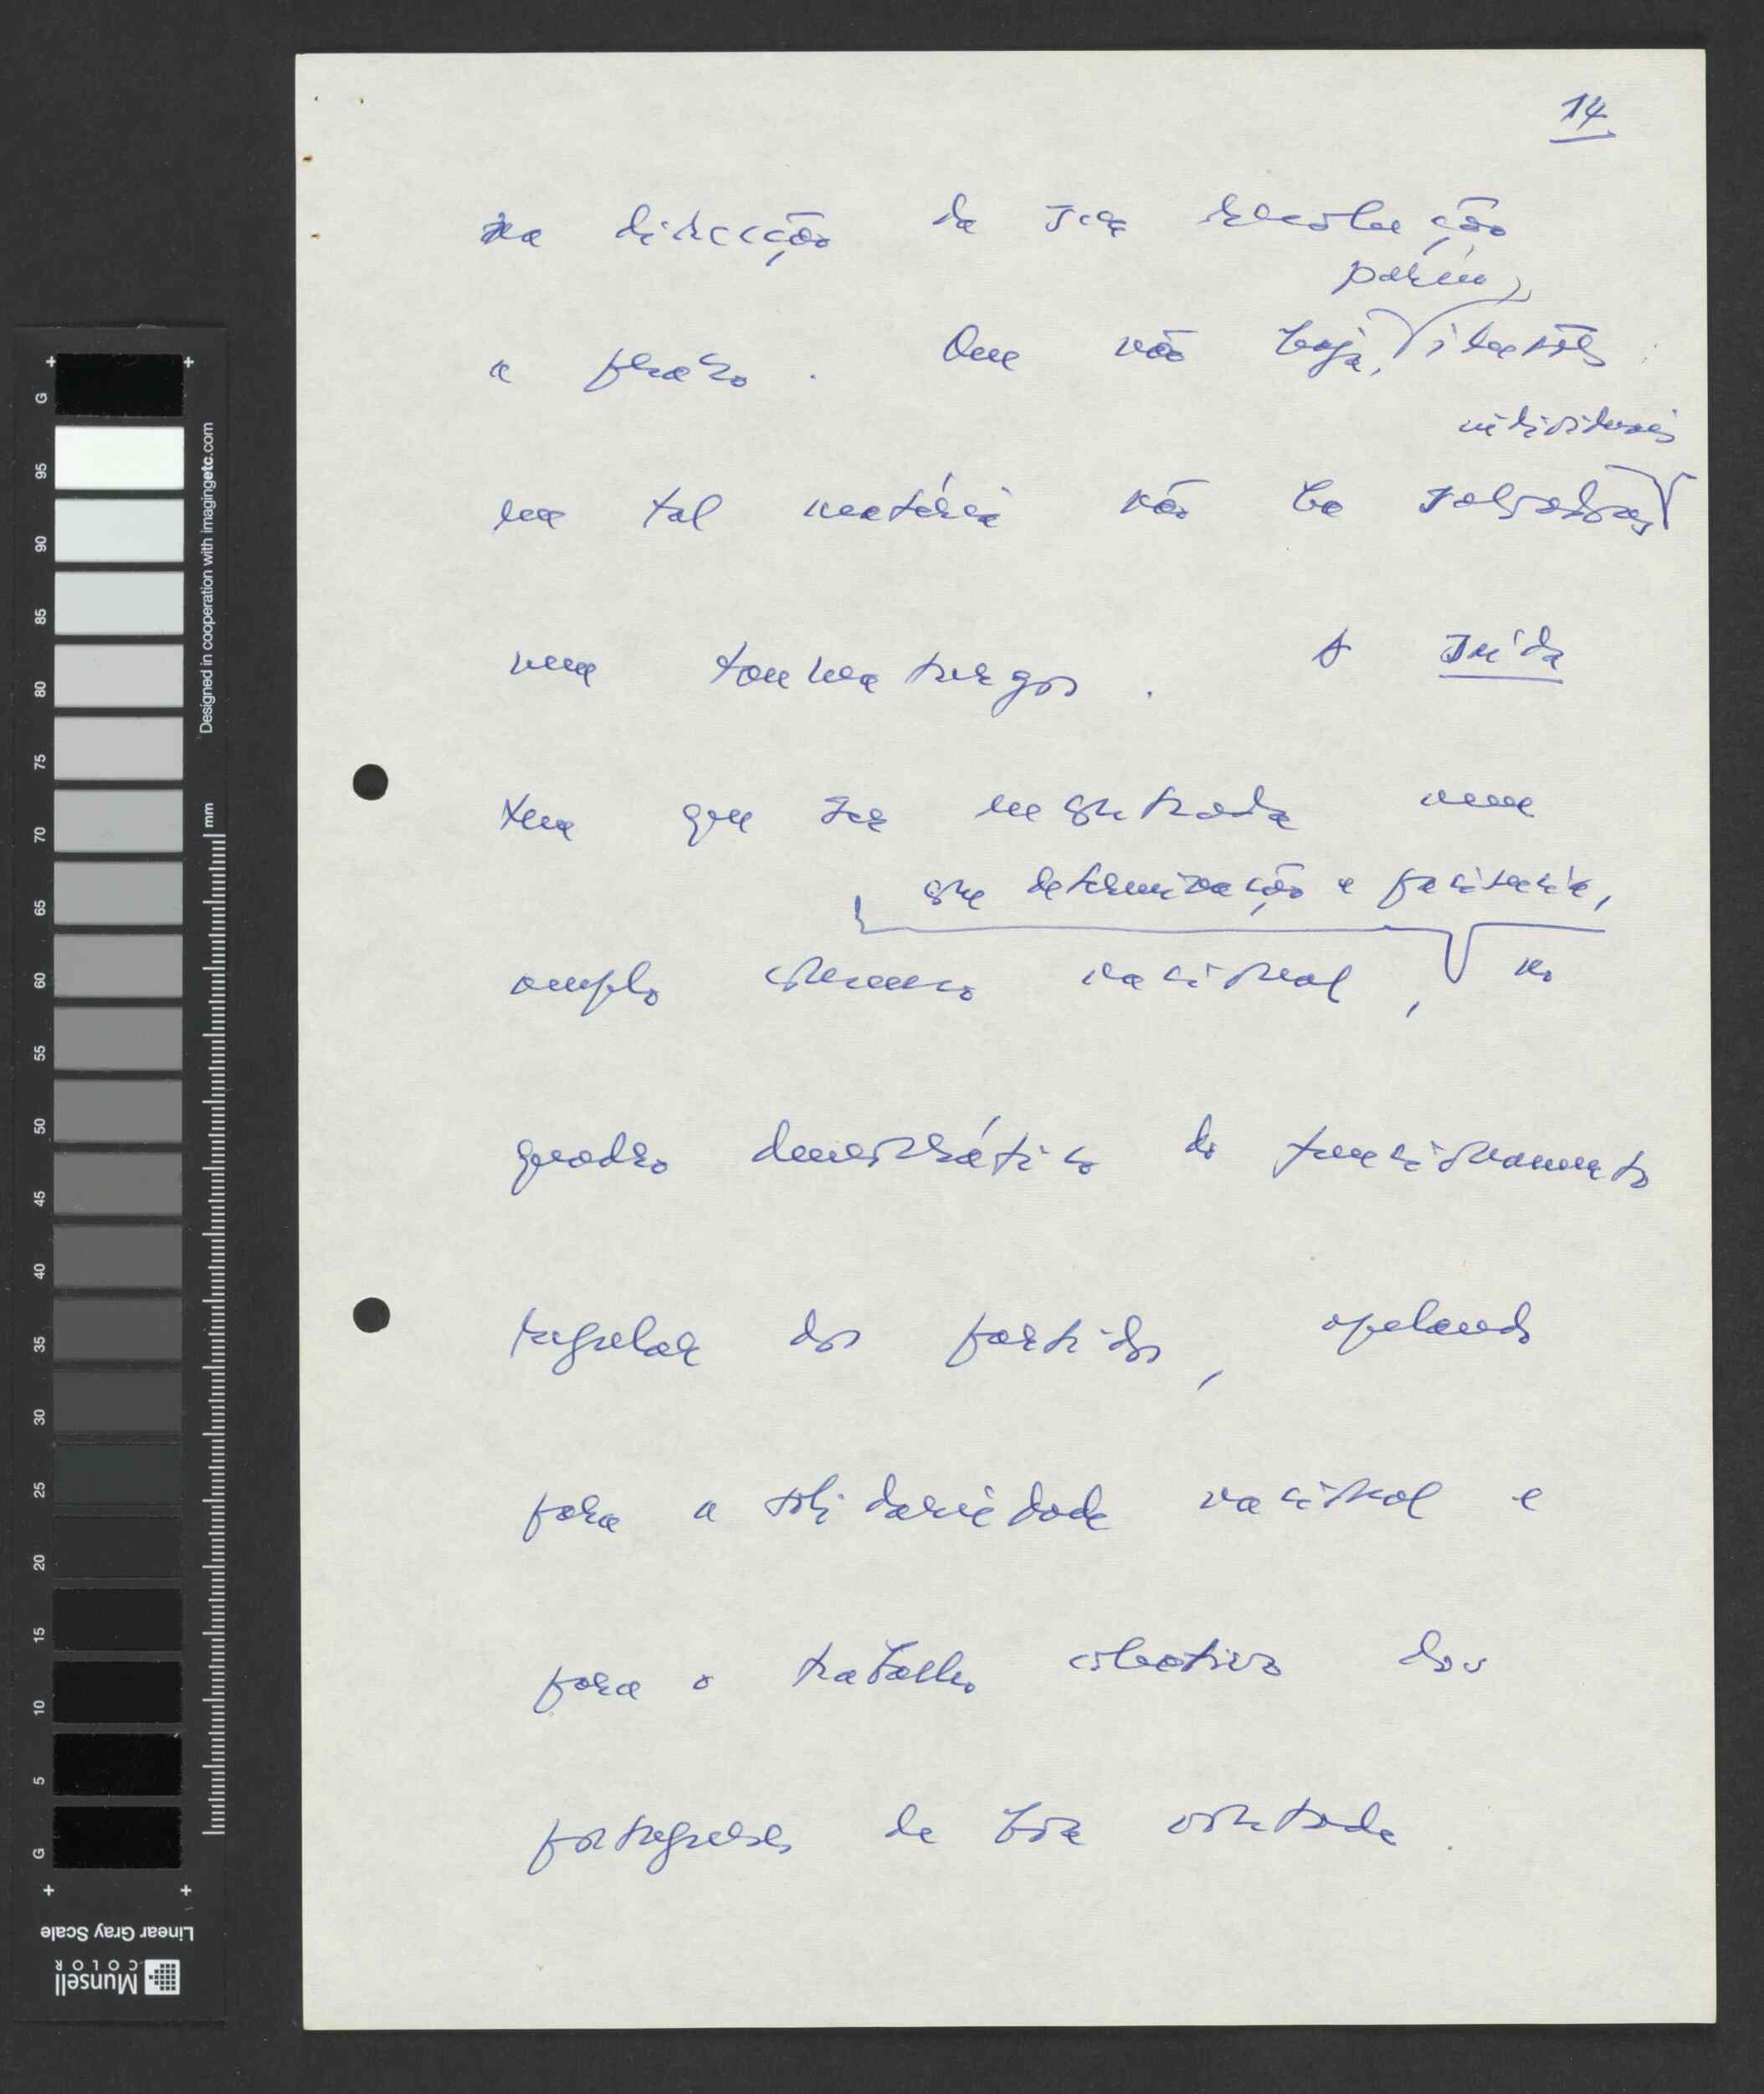 14
na direcção da sua resolução
porém,
a prazo. Que não haja, ilusões:
individuais
em tal matéria não há salvadores
nem taumaturgos. A saída
tem que ser encontrada num
determinação e paciência,
amplo consenso nacional, no
quadro democrático do funcionamento
regular dos partidos, apelando
para a solidariedade nacional e
para o trabalho colectivo dos
portugueses de boa vontade.
G
95
90
85
80
75
70
65
60
55
50
45
40
35
30
25
20
15
10
5
G
Designed in cooperation with imagingetc.com
mm
Linear Gray Scale
Munsell
COLOR